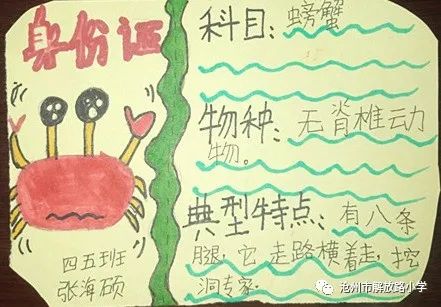 身份证
四五班
张海硕
科目：螃蟹
物种：无脊椎动
物。
典型特点：有八条
腿，它走路横着走，挖
洞专家。
沧州市解放路小学